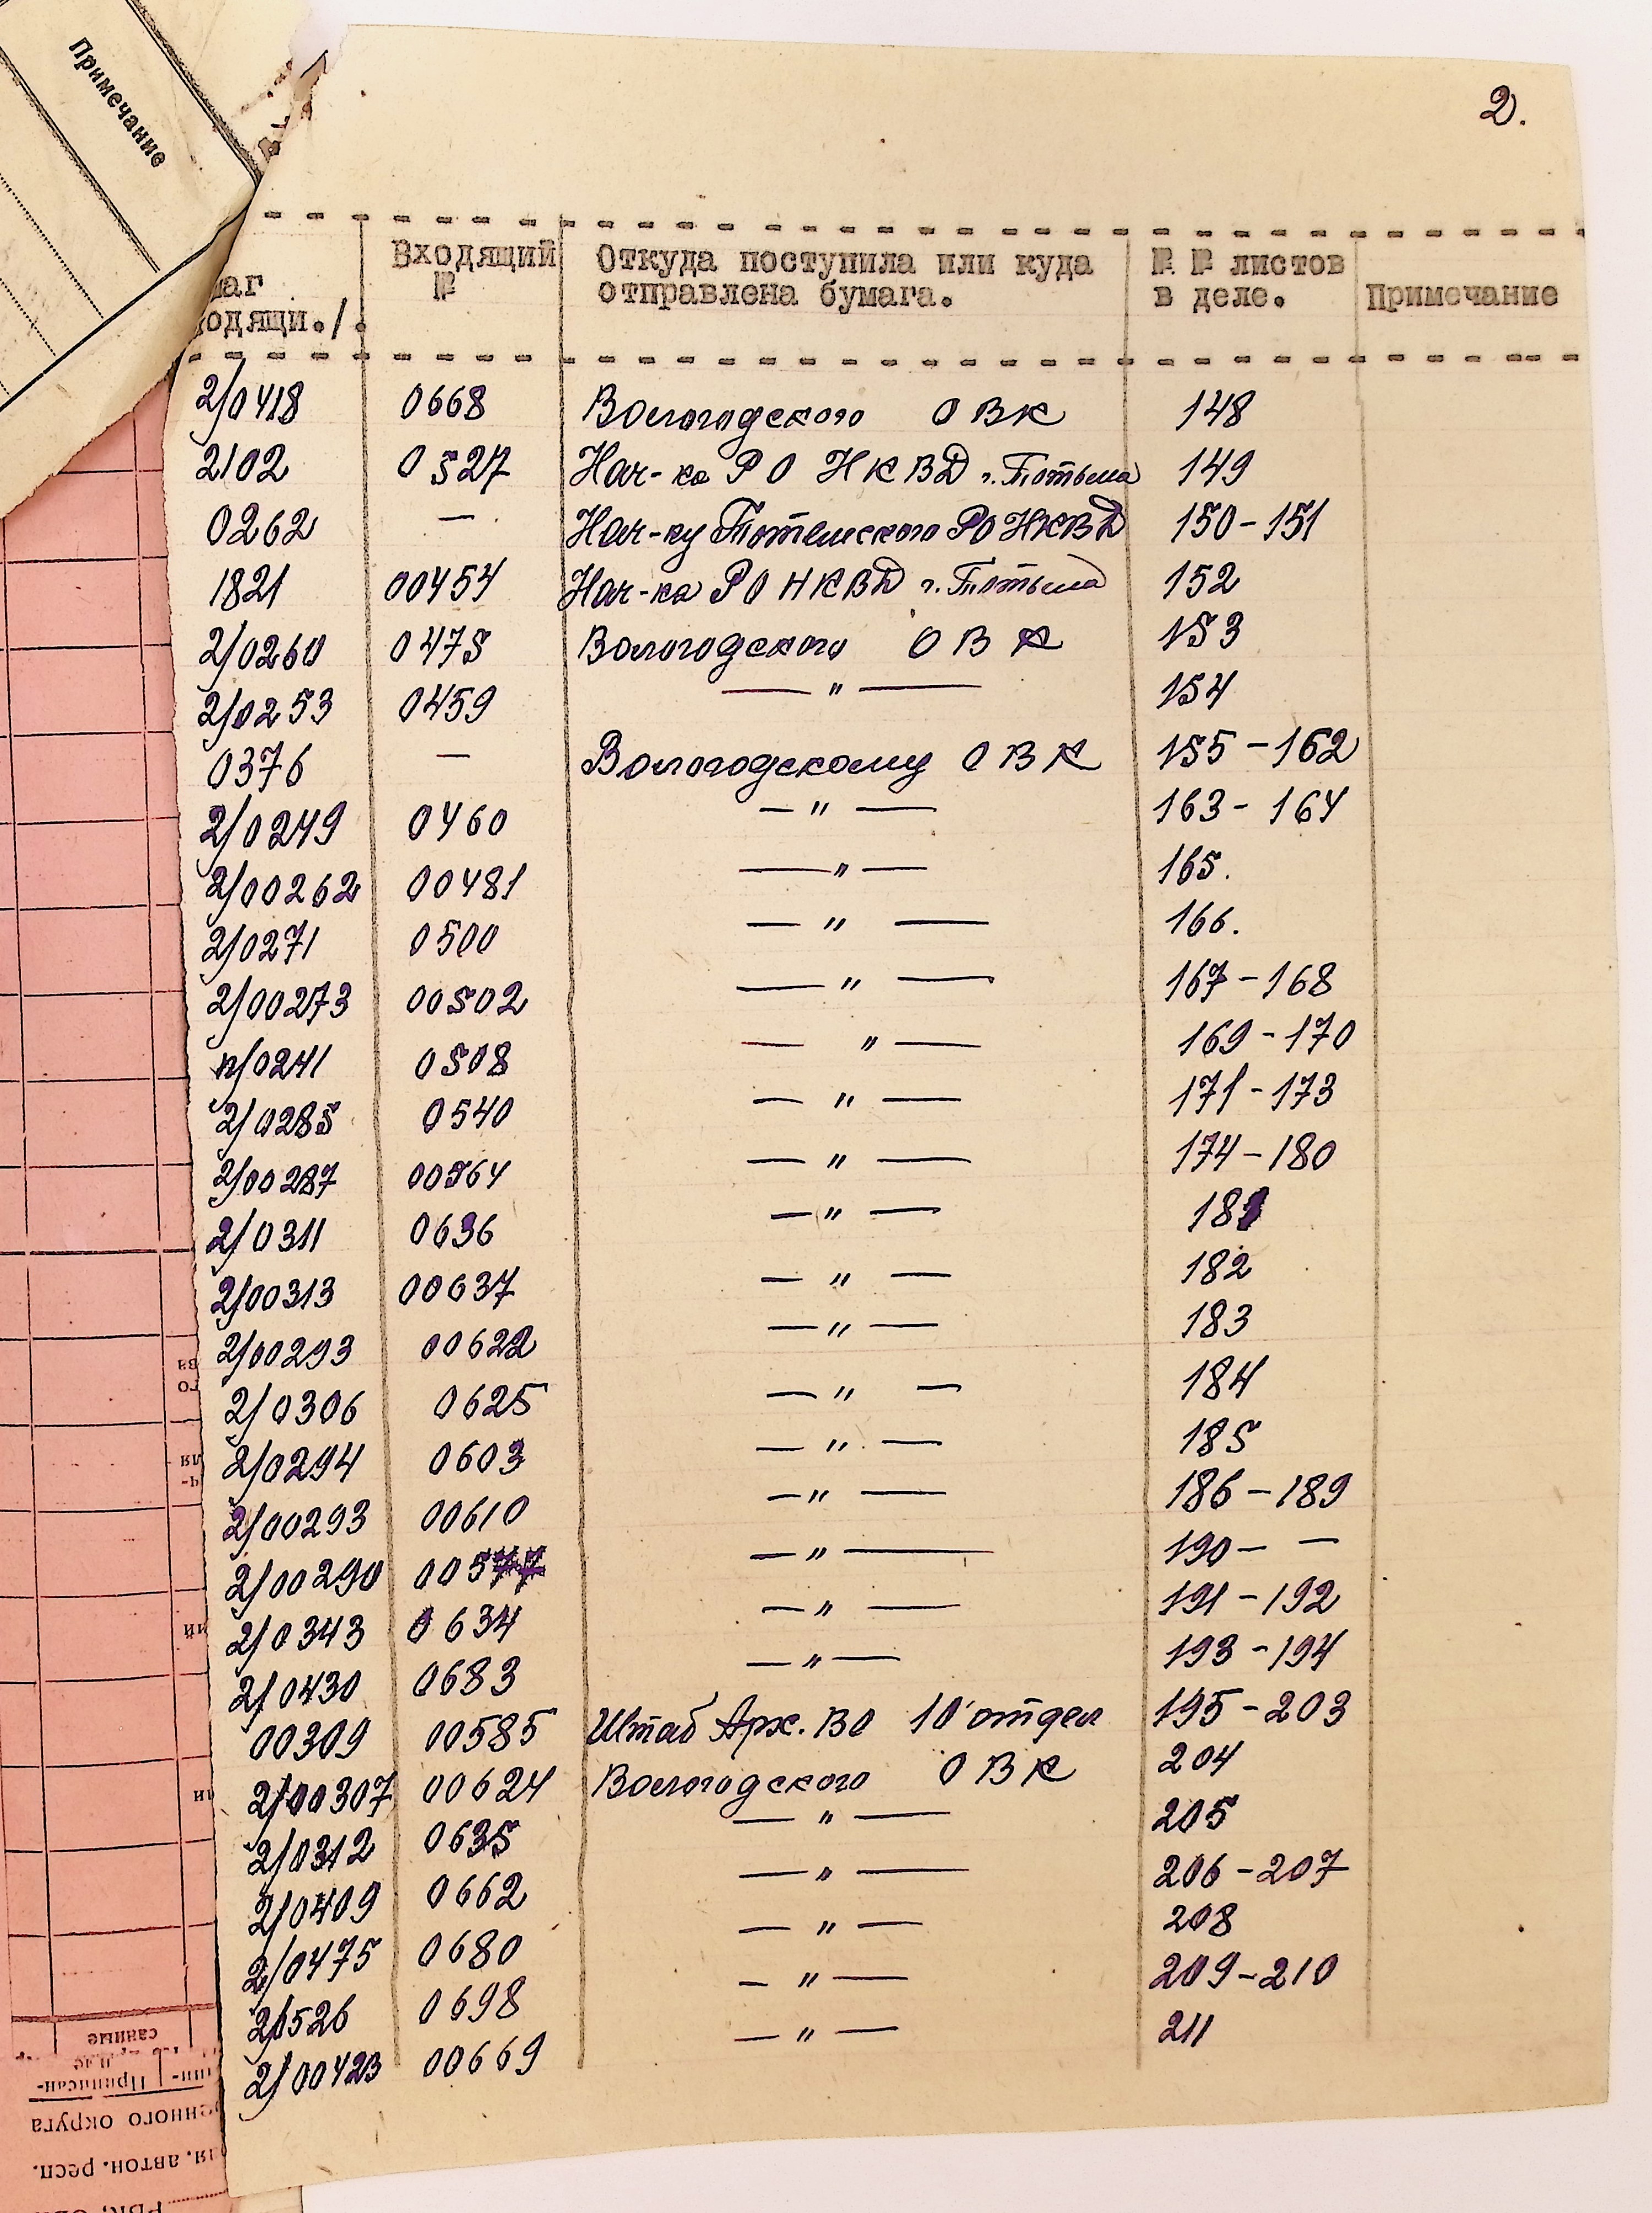 Примечание
2.
Входящий Откуда поступила или куда № № листов
маг № отправлена бумага. в деле. Примечание
одящи./.
2/0418 0668 Вологодского ОВК 148
2102 0527 Нач-ка РО НКВД г. Тотьма 149
0262 — Нач-ку Тотемского РО НКВД 150-151
1821 00454 Нач-ка РО НКВД г. Тотьма 152
2/0260 0475 Вологодского ОВК 153
2/0253 0459 — " — 154
0376 — Вологодскому ОВК 155-162
2/0249 0460 — " — 163-164
2/00262 00481 — " — 165.
2/0271 0500 — " — 166.
2/00273 00502 — " — 167-168
п/0241 0508 — " — 169-170
2/0285 0540 — " — 171-173
2/00287 00564 — " — 174-180
2/0311 0636 — " — 181
2/00313 00637 — " — 182
2/00293 00622 — " — 183
2/0306 0625 — " — 184
2/0294 0603 — " — 185
2/00293 00610 — " — 186-189
2/00290 00577 — " — 190- —
2/0343 0634 — " — 191-192
2/0430 0683 — " — 193-194
00309 00585 Штаб Арх. ВО 10 отдел 195-203
2/00307 00624 Вологодского ОВК 204
2/0312 0635 — " — 205
2/0409 0662 — " — 206-207
2/0475 0680 — " — 208
2/0526 0698 — " — 209-210
2/00423 00669 — " — 211
ва
го
ля
ч-
ий
ли
санные
Приписан-
енного округа
ия, автон. респ.